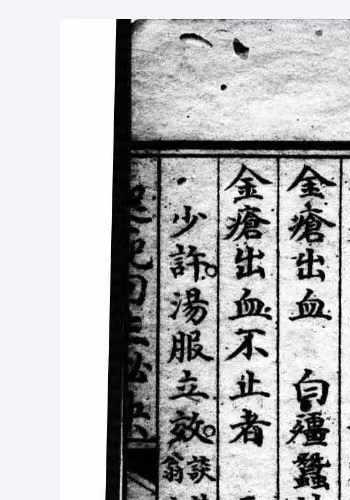 金瘡出血 白殭蠶
金瘡出血不止者
少許湯服立效談
翁